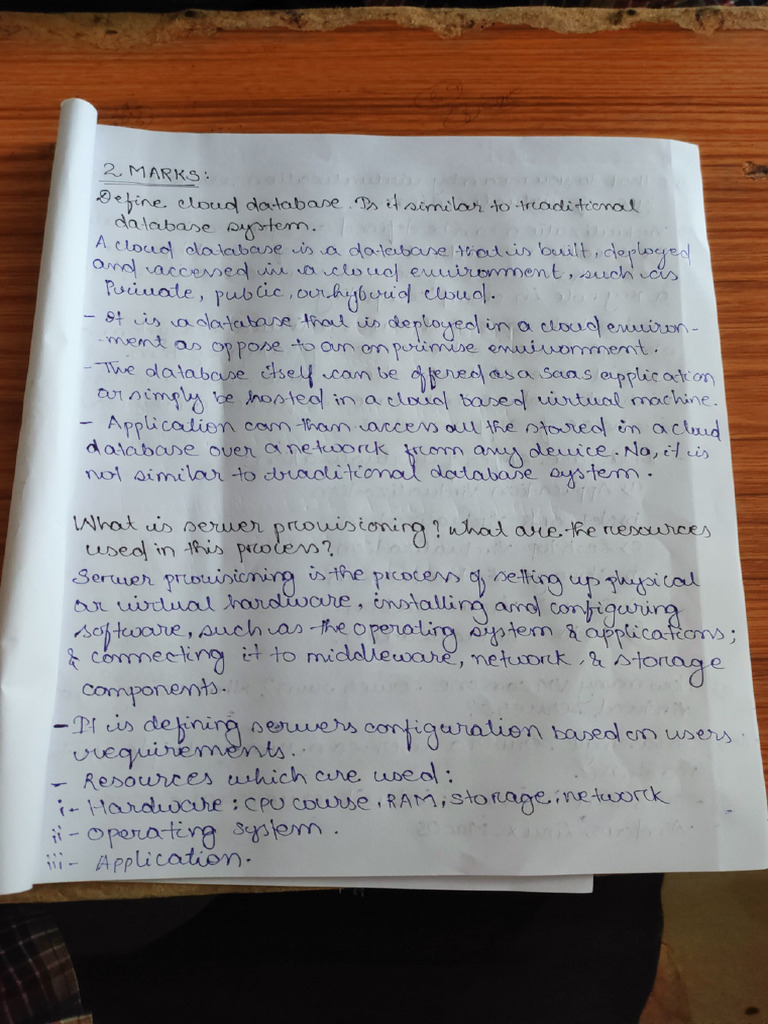 2 MARKS:
Define cloud database. Is it similar to traditional
database system.
A cloud database is a database that is built, deployed
and accessed in a cloud environment, such as
Private, public, or hybrid cloud.
- It is a database that is deployed in a cloud environ-
-ment as oppose to an onprimise environment.
- The database itself can be offered as a SaaS application
or simply be hosted in a cloud based virtual machine.
- Application can than access all the stored in a cloud
database over a network from any device. No, it is
not similar to traditional database system.
What is server provisioning? what are the resources
used in this process?
Server provisioning is the process of setting up physical
or virtual hardware, installing and configuring
software, such as the operating system & applications;
& connecting it to middleware, network, & storage
components.
- It is defining servers configuration based on users
requirements.
- Resources which are used:
i- Hardware: CPU course, RAM, storage, network
ii- Operating system.
iii- Application.